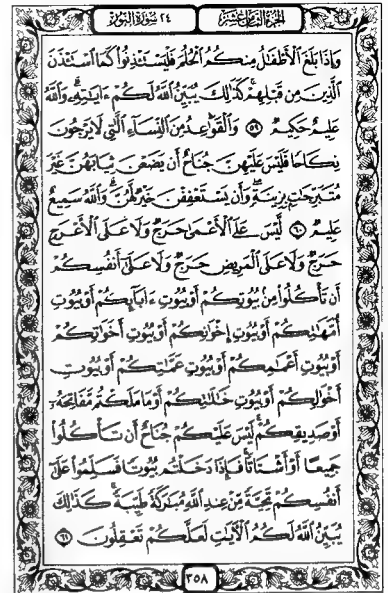 الجزء الثامن عشر
٢٤ سورة النور
وَإِذَا بَلَغَ ٱلْأَطْفَٰلُ مِنكُمُ ٱلْحُلُمَ فَلْيَسْتَـْٔذِنُوا۟ كَمَا ٱسْتَـْٔذَنَ
ٱلَّذِينَ مِن قَبْلِهِمْ ۚ كَذَٰلِكَ يُبَيِّنُ ٱللَّهُ لَكُمْ ءَايَٰتِهِۦ ۗ وَٱللَّهُ
عَلِيمٌ حَكِيمٌ ٥٩ وَٱلْقَوَٰعِدُ مِنَ ٱلنِّسَآءِ ٱلَّٰتِى لَا يَرْجُونَ
نِكَاحًا فَلَيْسَ عَلَيْهِنَّ جُنَاحٌ أَن يَضَعْنَ ثِيَابَهُنَّ غَيْرَ
مُتَبَرِّجَٰتٍۭ بِزِينَةٍ ۖ وَأَن يَسْتَعْفِفْنَ خَيْرٌ لَّهُنَّ ۗ وَٱللَّهُ سَمِيعٌ
عَلِيمٌ ٦٠ لَّيْسَ عَلَى ٱلْأَعْمَىٰ حَرَجٌ وَلَا عَلَى ٱلْأَعْرَجِ
حَرَجٌ وَلَا عَلَى ٱلْمَرِيضِ حَرَجٌ وَلَا عَلَىٰٓ أَنفُسِكُمْ
أَن تَأْكُلُوا۟ مِنۢ بُيُوتِكُمْ أَوْ بُيُوتِ ءَابَآئِكُمْ أَوْ بُيُوتِ
أُمَّهَٰتِكُمْ أَوْ بُيُوتِ إِخْوَٰنِكُمْ أَوْ بُيُوتِ أَخَوَٰتِكُمْ
أَوْ بُيُوتِ أَعْمَٰمِكُمْ أَوْ بُيُوتِ عَمَّٰتِكُمْ أَوْ بُيُوتِ
أَخْوَٰلِكُمْ أَوْ بُيُوتِ خَٰلَٰتِكُمْ أَوْ مَا مَلَكْتُم مَّفَاتِحَهُۥٓ
أَوْ صَدِيقِكُمْ ۚ لَيْسَ عَلَيْكُمْ جُنَاحٌ أَن تَأْكُلُوا۟
جَمِيعًا أَوْ أَشْتَاتًا ۚ فَإِذَا دَخَلْتُم بُيُوتًا فَسَلِّمُوا۟ عَلَىٰٓ
أَنفُسِكُمْ تَحِيَّةً مِّنْ عِندِ ٱللَّهِ مُبَٰرَكَةً طَيِّبَةً ۚ كَذَٰلِكَ
يُبَيِّنُ ٱللَّهُ لَكُمُ ٱلْءَايَٰتِ لَعَلَّكُمْ تَعْقِلُونَ ٦١
٣٥٨